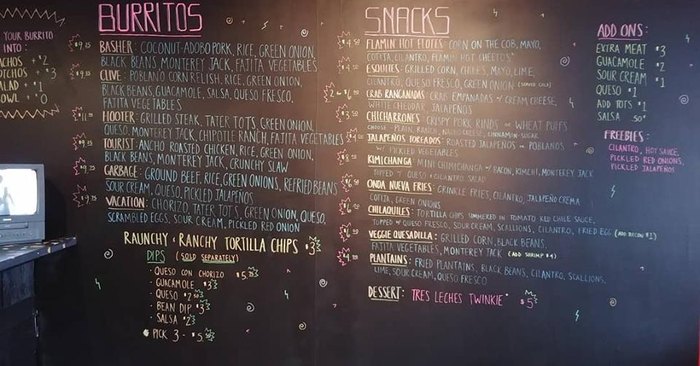 YOUR BURRITO
INTO:
NACHOS +$2
+$3
SALAD +$1
BOWL +$0
BURRITOS
BASHER: COCONUT-ADOBO PORK, RICE, GREEN ONION,
BLACK BEANS, MONTEREY JACK, FATITA VEGETABLES
CLIVE: POBLANO CORN RELISH, RICE, GREEN ONION,
BLACK BEANS, GUACAMOLE, SALSA, QUESO FRESCO,
FATITA VEGETABLES
HOOTER: GRILLED STEAK, TATER TOTS, GREEN ONION,
QUESO, MONTEREY JACK, CHIPOTLE RANCH, FATITA VEGETABLES
TOURIST: ANCHO ROASTED CHICKEN, RICE, GREEN ONION,
BLACK BEANS, MONTEREY JACK, CRUNCHY SLAW
GARBAGE: GROUND BEEF, RICE, GREEN ONIONS, REFRIED BEANS
SOUR CREAM, QUESO, PICKLED JALAPEÑOS
VACATION: CHORIZO, TATER TOTS, GREEN ONION, QUESO,
SCRAMBLED EGGS, SOUR CREAM, PICKLED RED ONION
RAUNCHY & RANCHY TORTILLA CHIPS $3
DIPS (SOLD SEPARATELY)
· QUESO CON CHORIZO $5
· GUACAMOLE $3
· QUESO $2
· BEAN DIP $3
· SALSA $2
* PICK 3 - $5
SNACKS
FLAMIN HOT ELOTES: CORN ON THE COB, MAYO,
COTIJA, CILANTRO, FLAMIN HOT CHEETOS
ESQUITES: GRILLED CORN, CHILES, MAYO, LIME,
CILANTRO, QUESO FRESCO, GREEN ONION (SERVED COLD)
CRAB RANGANADAS: CRAB EMPANADAS w/ CREAM CHEESE,
WHITE CHEDDAR, JALAPEÑOS
CHICHARRONES: CRISPY PORK RINDS OR WHEAT PUFFS
CHOOSE - PLAIN, RANCH, NACHO CHEESE, CINNAMON SUGAR
JALAPEÑOS TOREADOS: ROASTED JALAPEÑOS OR POBLANOS
w/ PICKLED VEGETABLES
KIMICHANGA: MINI CHIMICHANGA w/ BACON, KIMCHI, MONTEREY JACK
TOPPED w/ QUESO & CILANTRO SALAD
ONDA NUEVA FRIES: CRINKLE FRIES, CILANTRO, JALAPEÑO CREMA
COTIJA, GREEN ONIONS
CHILAQUILES: TORTILLA CHIPS SIMMERED IN TOMATO RED CHILE SAUCE,
TOPPED w/ QUESO FRESCO, SOUR CREAM, SCALLIONS, CILANTRO, FRIED EGG (ADD BACON $1)
VEGGIE QUESADILLA: GRILLED CORN, BLACK BEANS,
FATITA VEGETABLES, MONTEREY JACK (ADD SHRIMP $4)
PLANTAINS: FRIED PLANTAINS, BLACK BEANS, CILANTRO, SCALLIONS,
LIME, SOUR CREAM, QUESO FRESCO
DESSERT: TRES LECHES TWINKIE $5
ADD ONS:
EXTRA MEAT $3
GUACAMOLE $2
SOUR CREAM $1
QUESO $1
ADD TOTS $1
SALSA .50
FREEBIES:
CILANTRO, HOT SAUCE,
PICKLED RED ONIONS,
PICKLED JALAPEÑOS